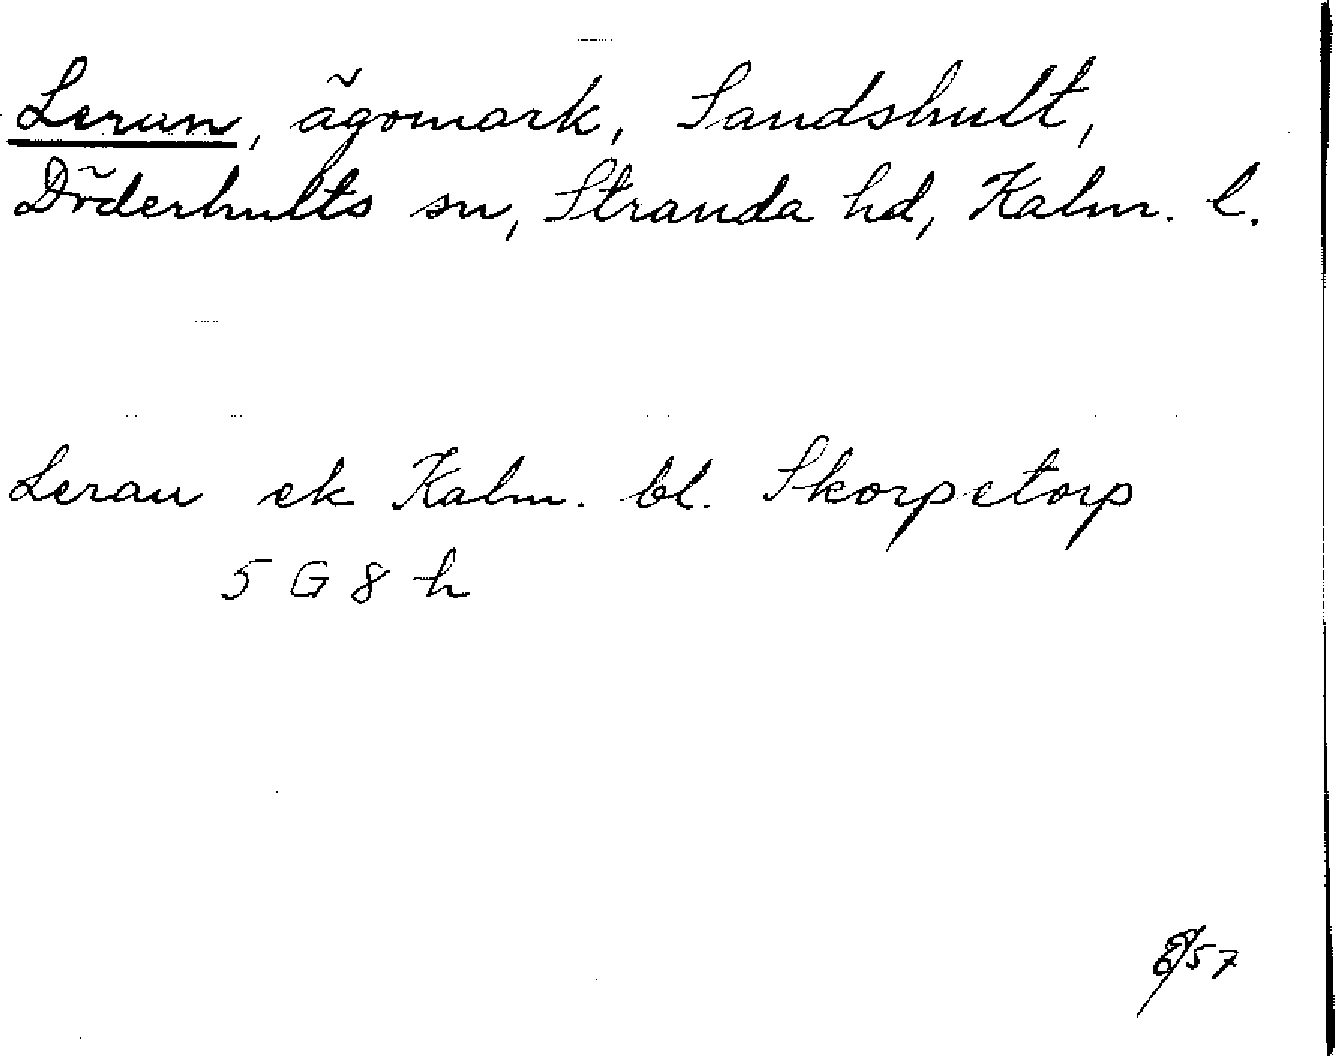 Leran, ägomark, Sandshult,
Döderhults sn, Stranda hd, Kalm. l.
Leran ek Kalm. bl. Skorpetorp
5 G 8 h
57